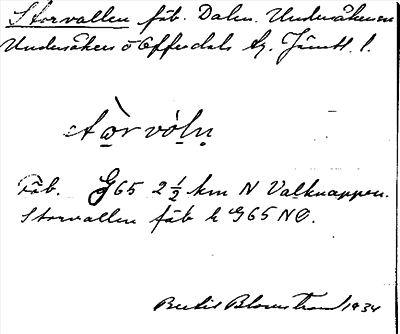 Storvallen fäb. Dalen. Undersåkers sn
Undersåkers o Offerdals tg. Jämtl. l.
stòrvóln
Fäb. G65 2½ km N Valknappen.
Storvallen fäb k G65 NO.
Bertil Blomstrand 1934